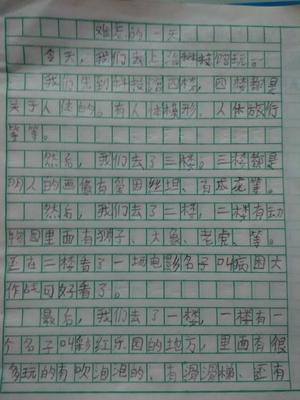 难忘的一天
今天，我们去上海科技馆玩。
我们先到科技馆四楼，四楼都是
关于人体的。有人体模形、人体旅行
等等。
然后，我们去了三楼。三楼都是
明人的画像有爱因丝坦、有居里等。
然后，我们去了二楼，二楼有动
物园里面有狮子、大象、老虎、等。
还在二楼看了一场电影名子叫病因大
作战可好看了。
最后，我们去了一楼，一楼有一
个名子叫彩虹乐园的地方，里面有很
多玩的有吹泡泡的、有滑滑梯、还有